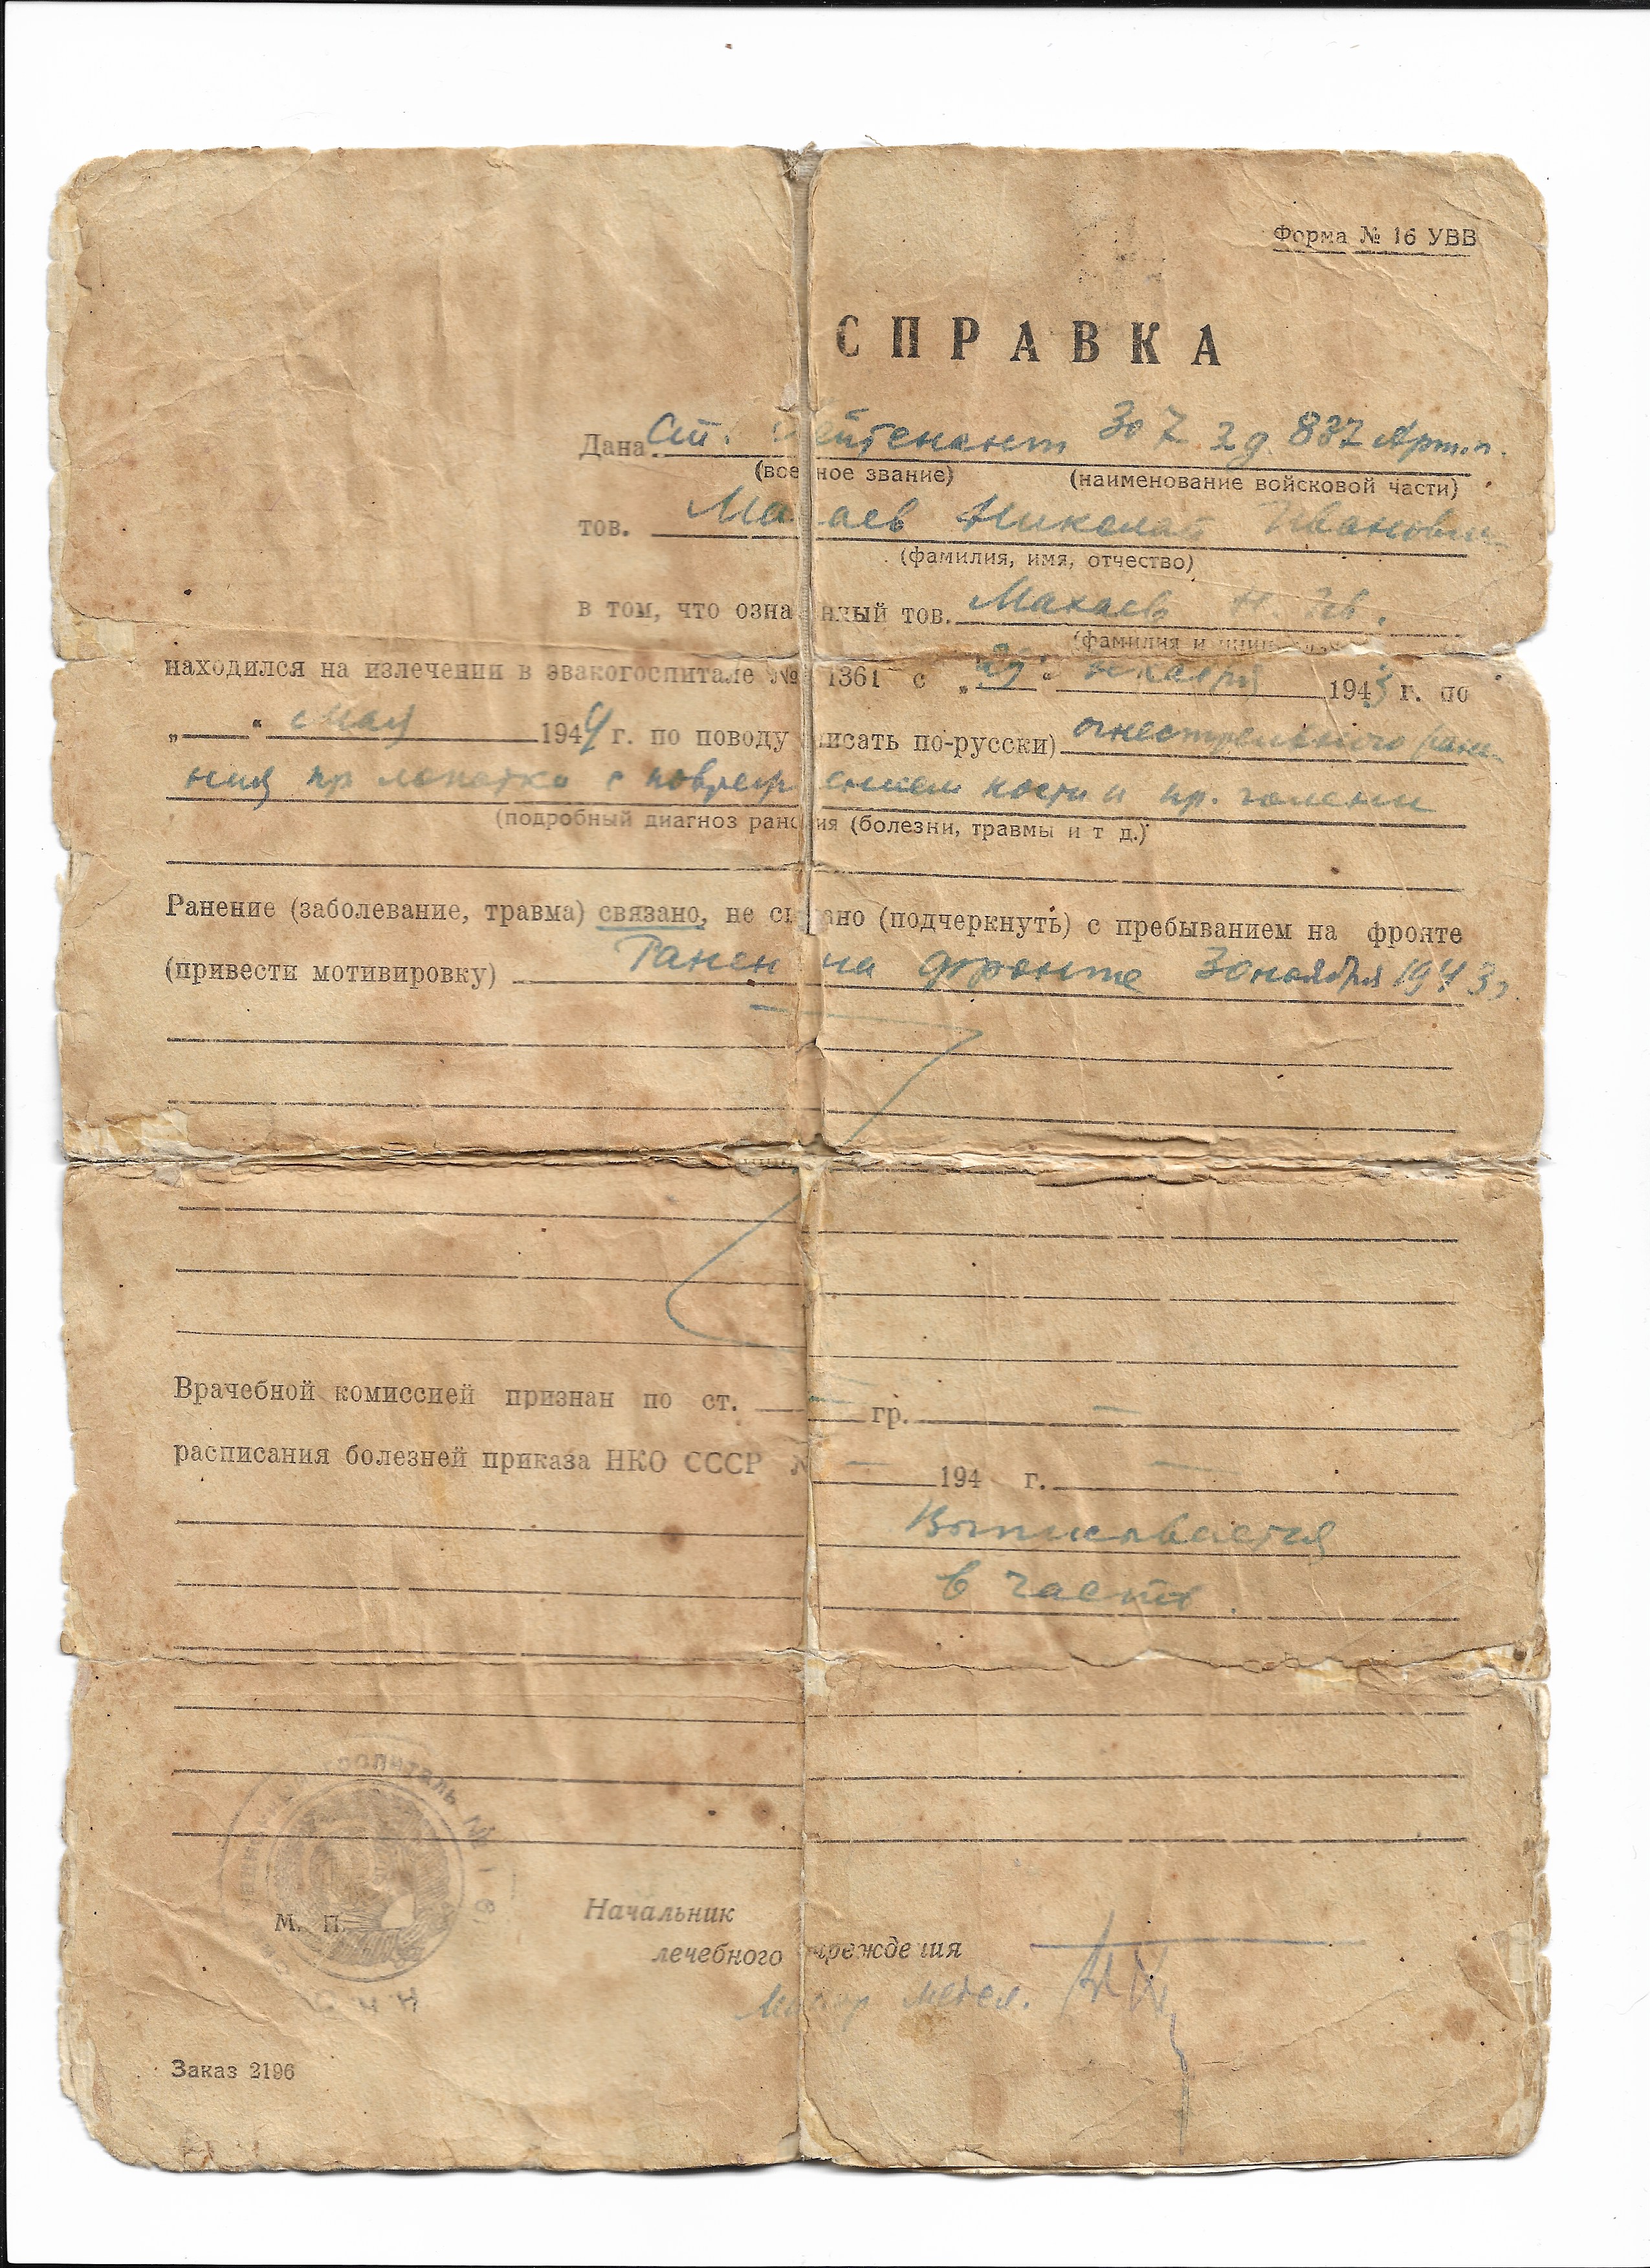 Форма № 16 УВВ
СПРАВКА
Дана Ст. Лейтенант 307 з д. 837 Арт.п.
(военное звание) (наименование войсковой части)
тов. Макаев Николай Иванович
(фамилия, имя, отчество)
в том, что означенный тов. Макаев Н. Ив.
(фамилия и иниц
находился на излечении в эвакогоспитале № 1361 с „29" декабря 1943 г. по
„ " мая 1944 г. по поводу писать по-русски) огнестрельного ране-
ния пр лопатки с повреждением кости и пр. голени
(подробный диагноз ранения (болезни, травмы и т д.)
Ранение (заболевание, травма) связано, не связано (подчеркнуть) с пребыванием на фронте
(привести мотивировку) Ранен на фронте 30 ноября 1943 г.
Врачебной комиссией признан по ст. — гр. —
расписания болезней приказа НКО СССР № — 194 г. —
Выписывается
в часть.
госпиталь №
М. П.
Начальник
лечебного учреждения
Майор медсл.
Заказ 2196